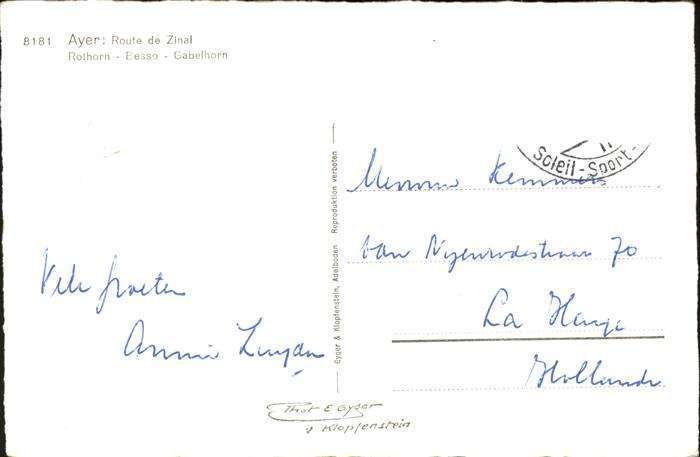 8181 Ayer: Route de Zinal
Rothorn - Besso - Gabelhorn
Soleil - Sport -
Gyger & Klopfenstein, Adelboden Reproduktion verboten
van Nyenrodestraat 70
La Haye
Hollande
Vele groeten
Annie
Phot E Gyger
& Klopfenstein